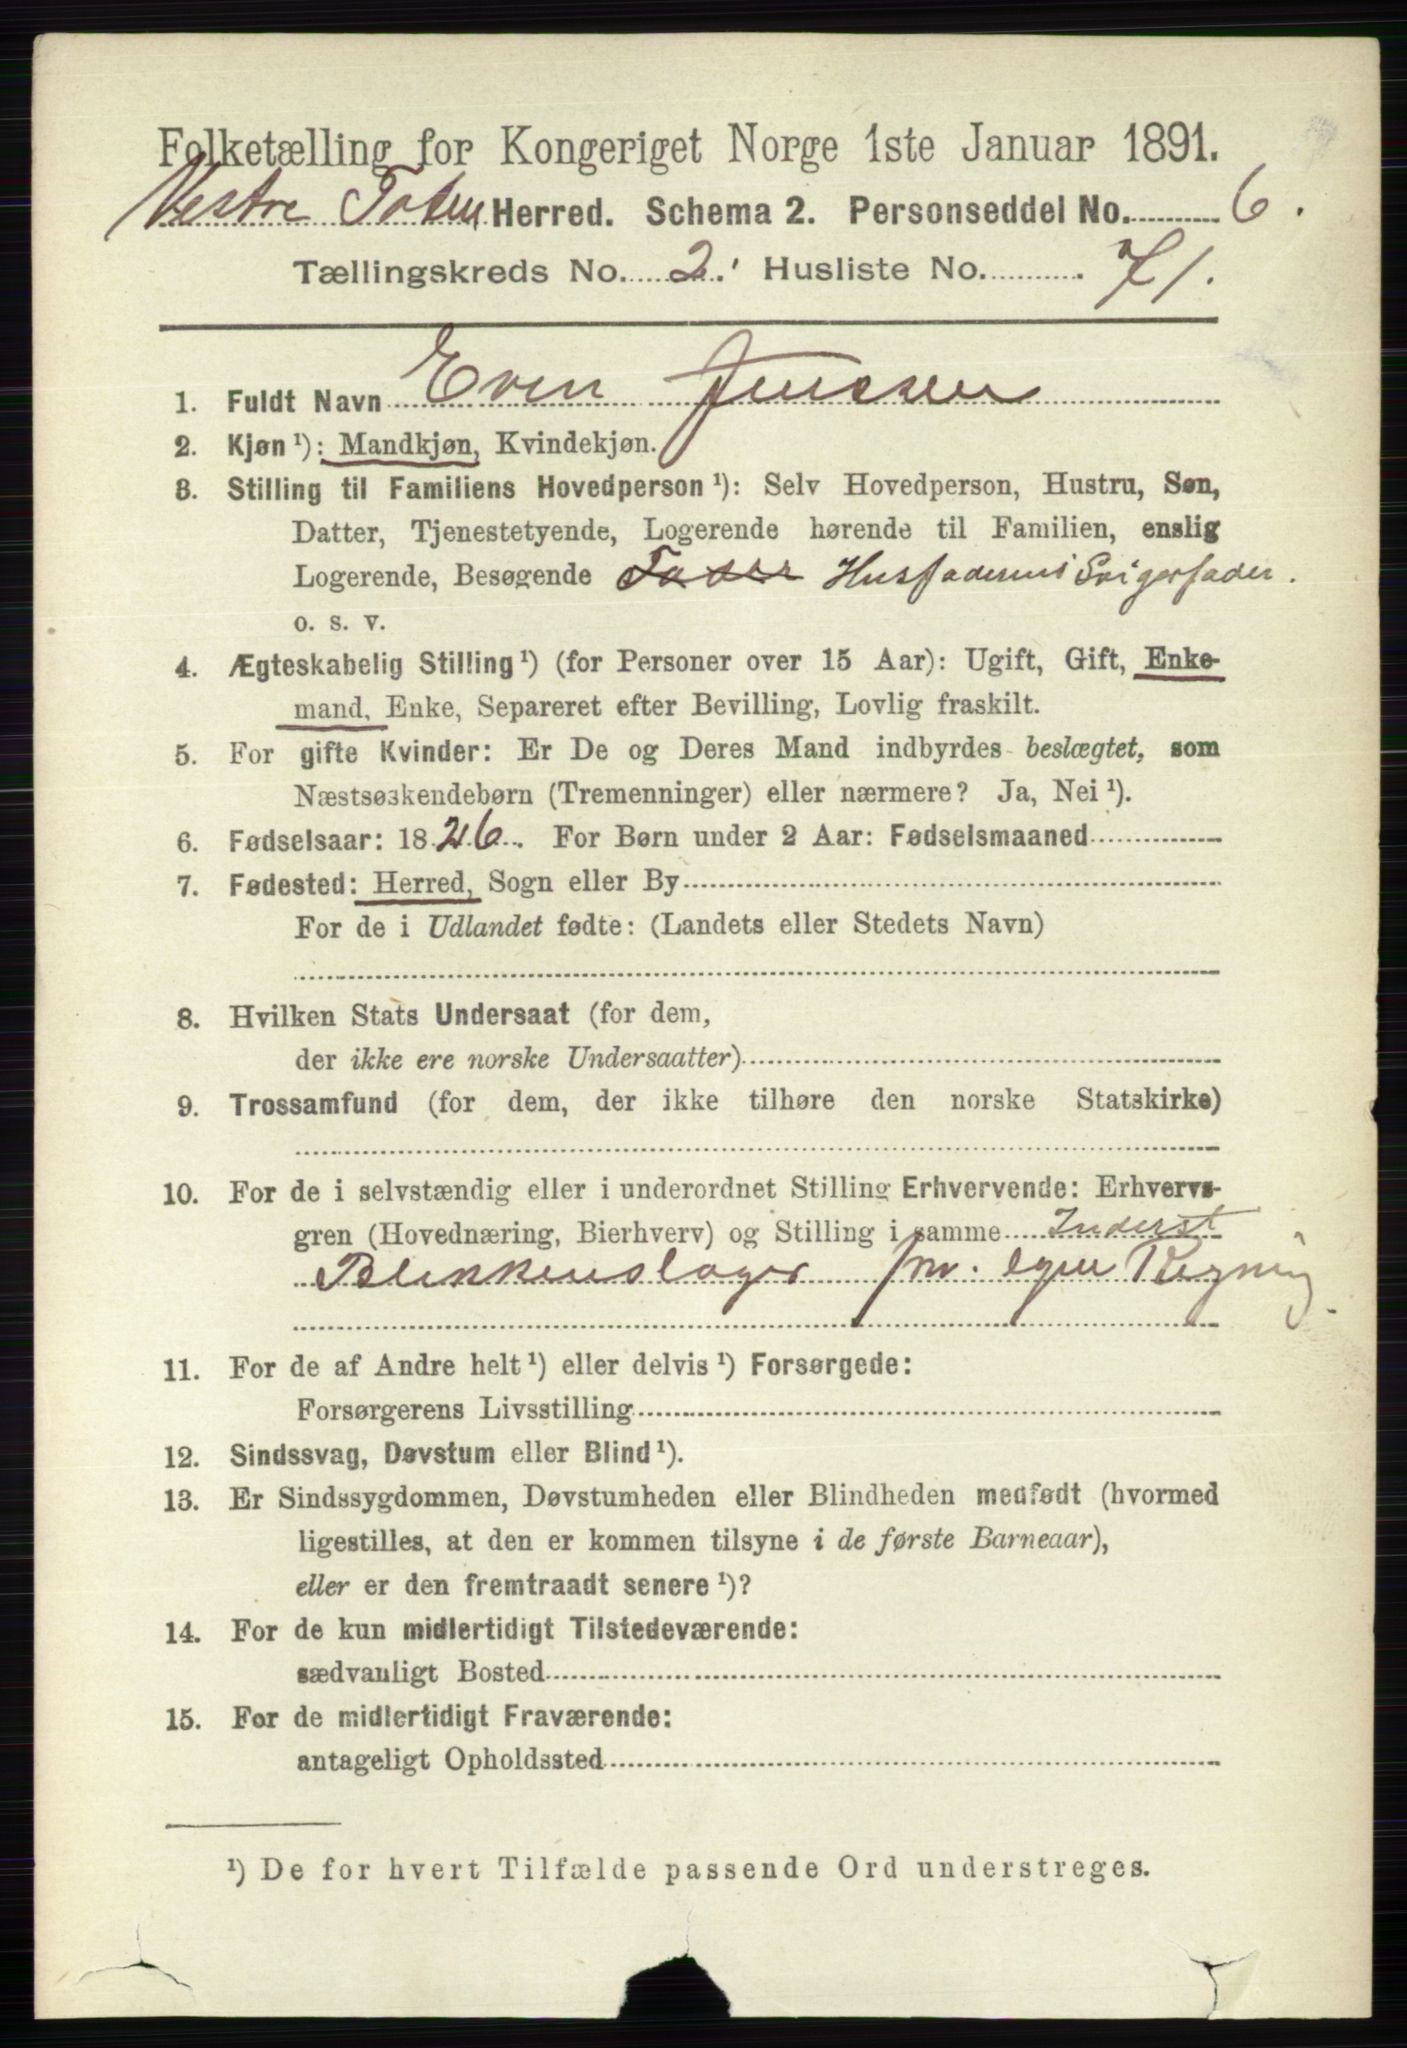 Folketælling for Kongeriget Norge 1ste Januar 1891.
Vestre Toten Herred. Schema 2. Personseddel No. 6.
Tællingskreds No. 2. Husliste No. 71.
1. Fuldt Navn Even Jenssen
2. Kjøn ¹): Mandkjøn, Kvindekjøn.
3. Stilling til Familiens Hovedperson ¹): Selv Hovedperson, Hustru, Søn,
Datter, Tjenestetyende, Logerende hørende til Familien, enslig
Logerende, Besøgende Fader Husfaderens Svigerfader.
o. s. v.
4. Ægteskabelig Stilling ¹) (for Personer over 15 Aar): Ugift, Gift, Enke-
mand, Enke, Separeret efter Bevilling, Lovlig fraskilt.
5. For gifte Kvinder: Er De og Deres Mand indbyrdes beslægtet, som
Næstsøskendebørn (Tremenninger) eller nærmere? Ja, Nei ¹).
6. Fødselsaar: 1826. For Børn under 2 Aar: Fødselsmaaned
7. Fødested: Herred, Sogn eller By
For de i Udlandet fødte: (Landets eller Stedets Navn)
8. Hvilken Stats Undersaat (for dem,
der ikke ere norske Undersaatter)
9. Trossamfund (for dem, der ikke tilhøre den norske Statskirke)
10. For de i selvstændig eller i underordnet Stilling Erhvervende: Erhvervs-
gren (Hovednæring, Bierhverv) og Stilling i samme Inderst
Blikkenslager for egen Regning.
11. For de af Andre helt ¹) eller delvis ¹) Forsørgede:
Forsørgerens Livsstilling
12. Sindssvag, Døvstum eller Blind ¹).
13. Er Sindssygdommen, Døvstumheden eller Blindheden medfødt (hvormed
ligestilles, at den er kommen tilsyne i de første Barneaar),
eller er den fremtraadt senere ¹)?
14. For de kun midlertidigt Tilstedeværende:
sædvanligt Bosted
15. For de midlertidigt Fraværende:
antageligt Opholdssted
¹) De for hvert Tilfælde passende Ord understreges.